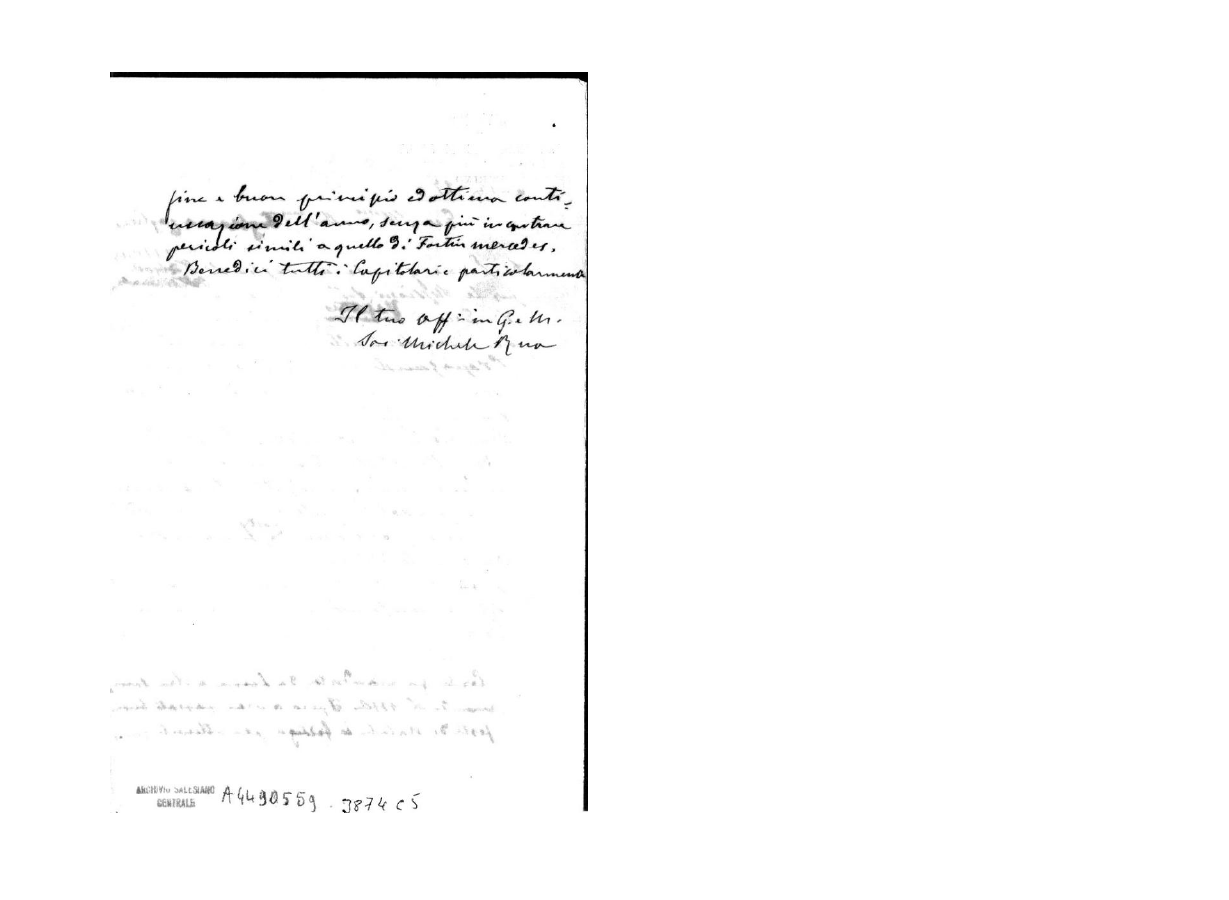 fine e buon principio ed ottima conti-
nuazione dell'anno, senza più incontrare
pericoli simili a quello di Fortin mercedes.
Benedici tutti i Capitolari e particolarmente
Il tuo aff. in G. e M.
Sac. Michele Rua
ARCHIVIO SALESIANO
CENTRALE
A4490559 . 3874 C5